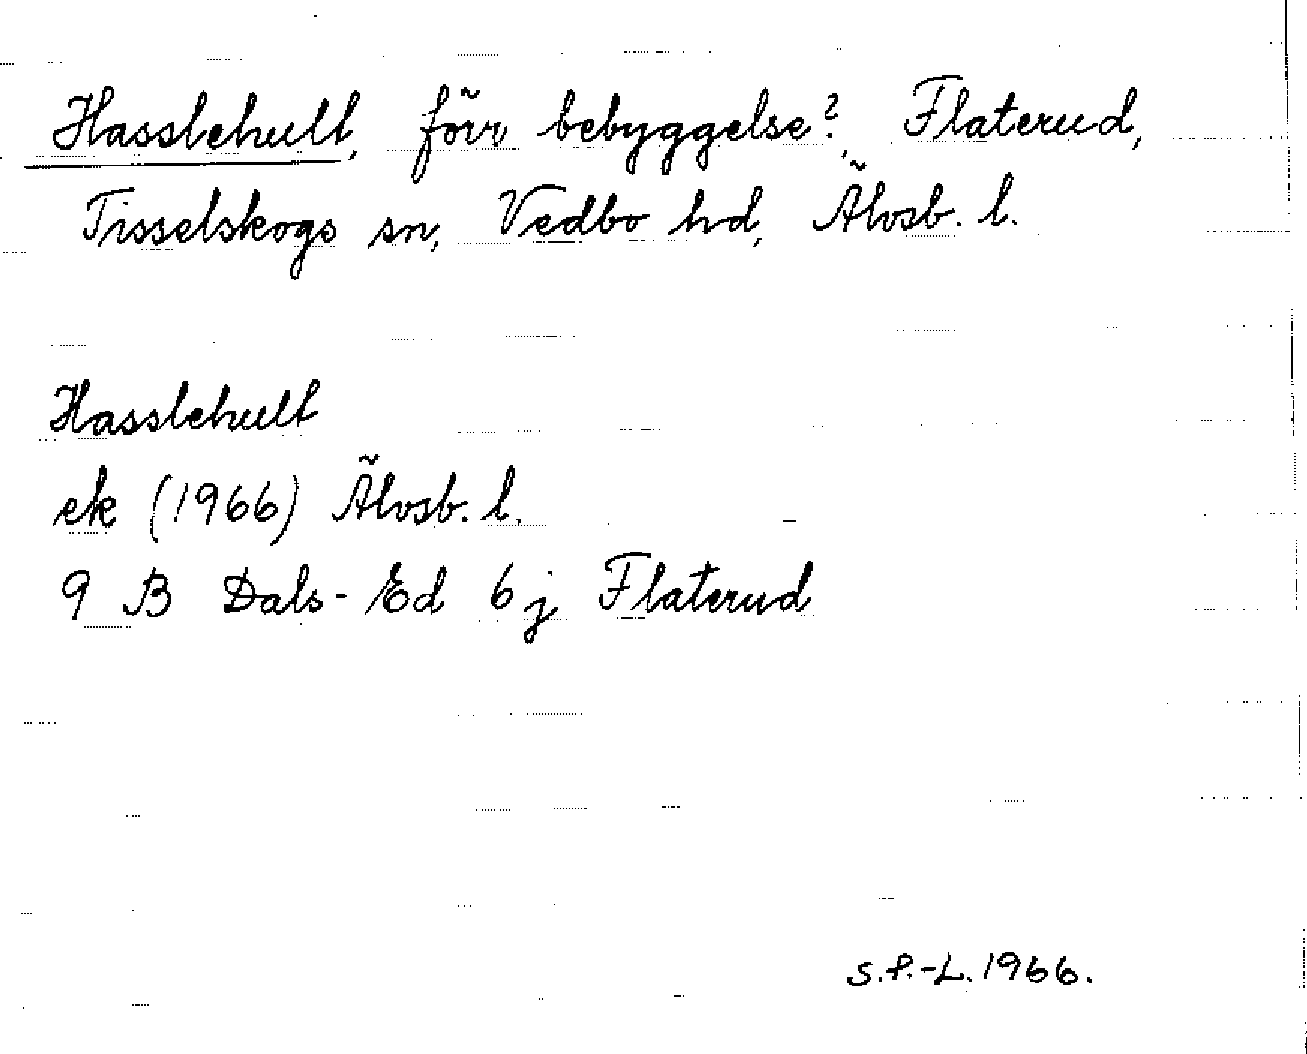 Hasslehult, förr bebyggelse?, Flaterud,
Tisselskogs sn, Vedbo hd, Älvsb. l.
Hasslehult
ek (1966) Älvsb. l.
9 B Dals-Ed 6 j Flaterud
S.P.-L. 1966.